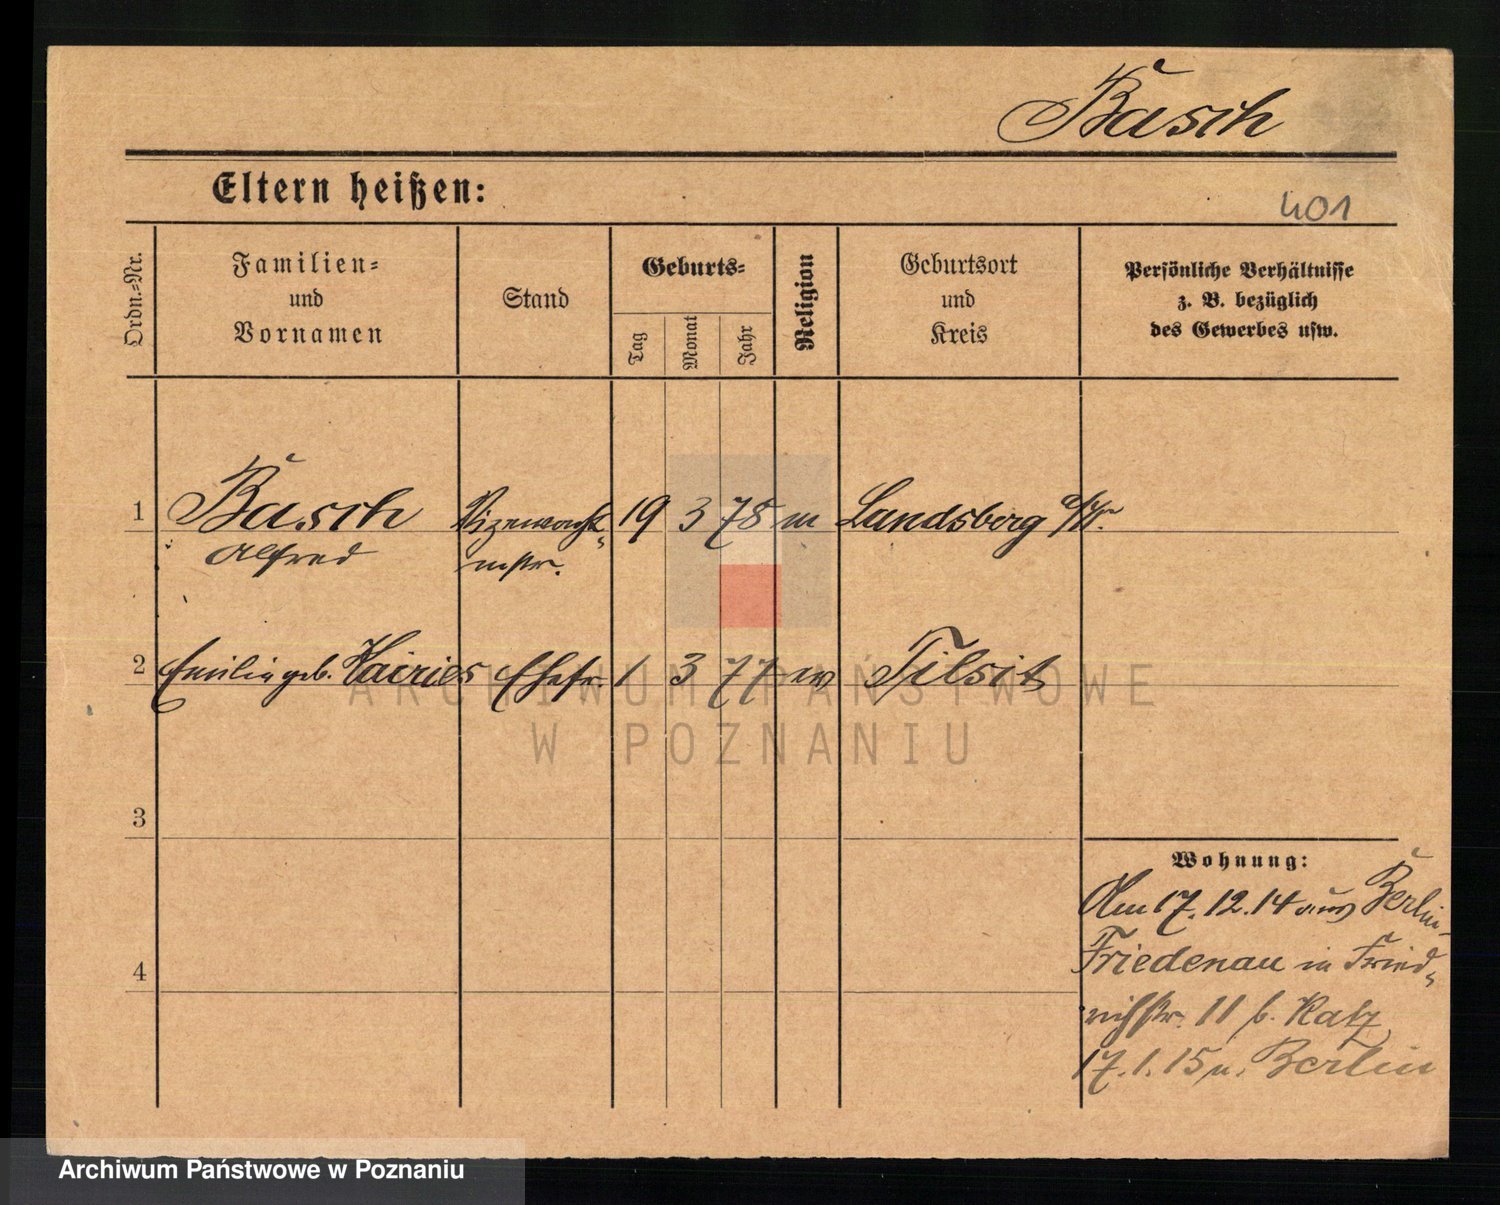 Basch
Eltern heißen:
401
Ordn.-Nr.
Familien-
und
Vornamen
Stand
Geburts-
Tag
Monat
Jahr
Religion
Geburtsort
und
Kreis
Persönliche Verhältnisse
z. B. bezüglich
des Gewerbes usw.
1 Basch Vizewacht- 19 3 78 m Landsberg a/W.
Alfred mstr.
2 Emilie geb. Kairies Ehefr. 1 3 77 ev Tilsit
ARCHIWUM PAŃSTWOWE
W POZNANIU
3
Wohnung:
Am 17.12.14 aus Berlin-
Friedenau in Fried-
4
richstr. 11 b. Katz
17.1.15 n. Berlin
Archiwum Państwowe w Poznaniu